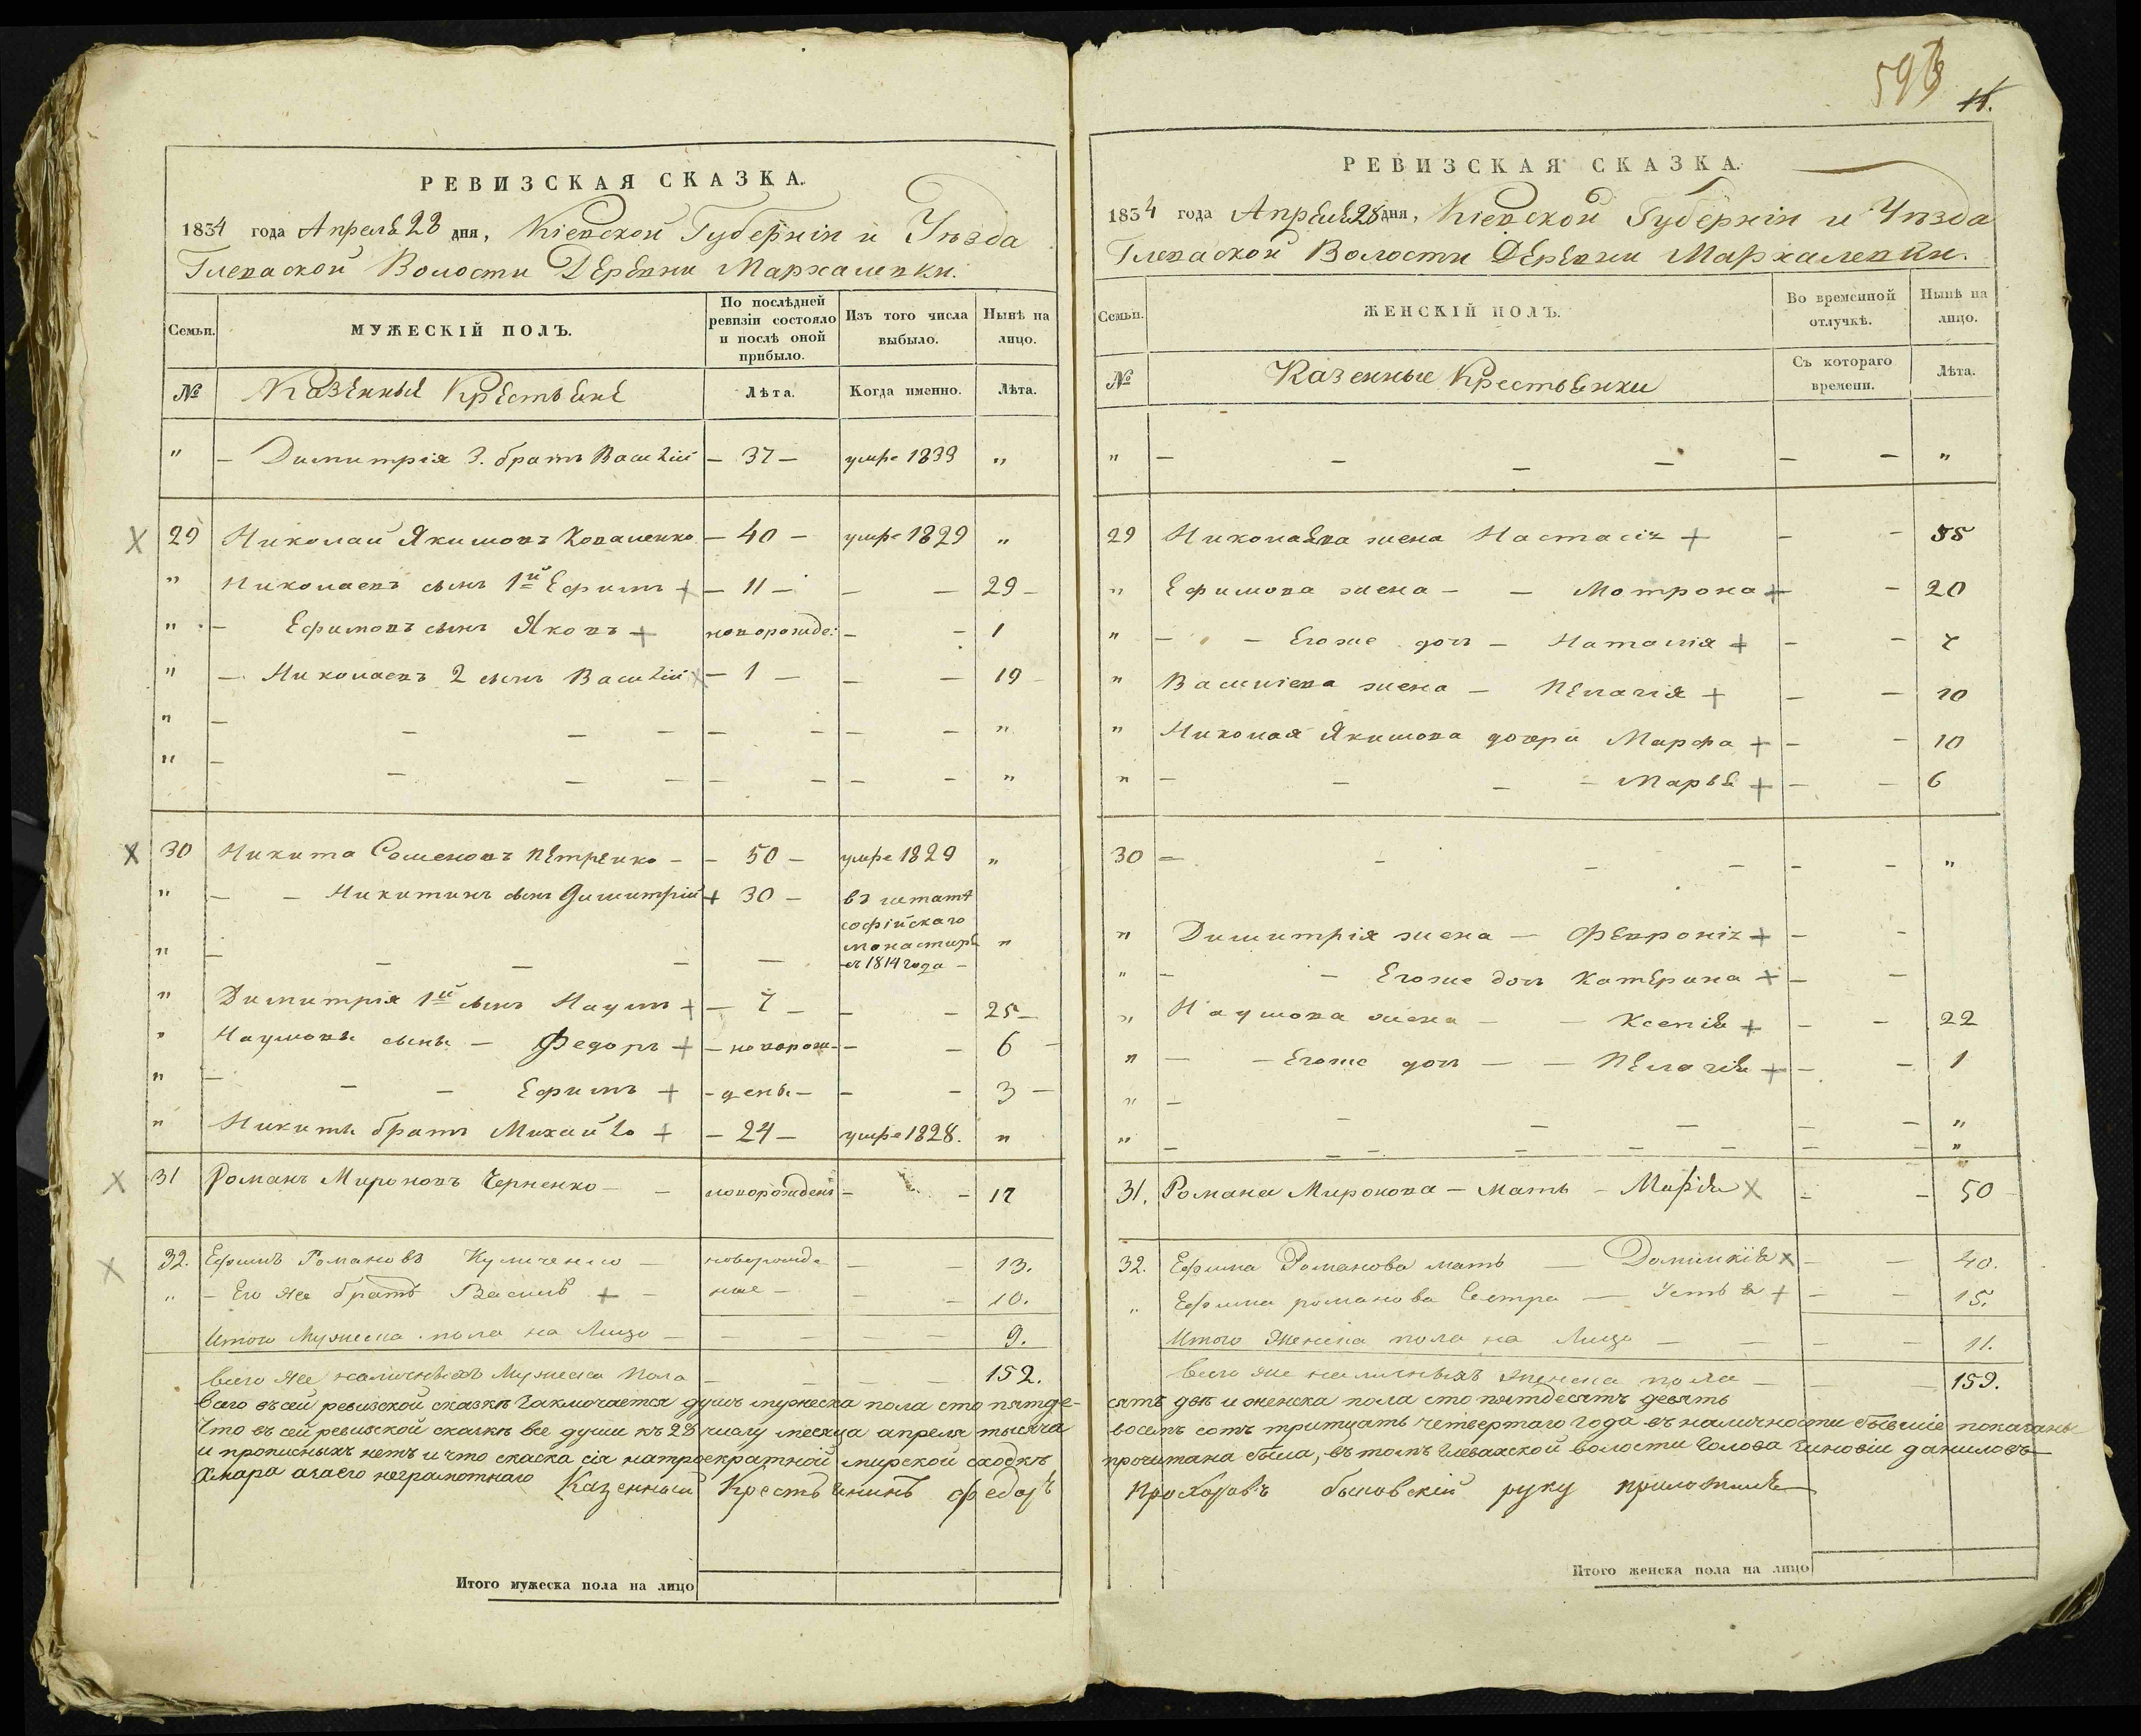 593
11.
РЕВИЗСКАЯ СКАЗКА.
1834 года Апреля 28 дня, Кіевской Губерніи и Уѣзда
Глевахской Волости Деревни Мархалевки.
Семьи.
МУЖЕСКІЙ ПОЛЪ.
По послѣдней ревизіи состояло и послѣ оной прибыло.
Изъ того числа выбыло.
Нынѣ на лицо.
№ Казенныя Крестьяне Лѣта. Когда именно. Лѣта.
" - Димитрія 3. братъ Василій - 37 - умре 1833 "
29 Николай Якимовъ Коваленко - 40 - умре 1829 "
" Николаевъ сынъ 1й Ефимъ + - 11 - - - 29 -
" - Ефимовъ сынъ Яковъ + новорожде: - - 1
" - Николаевъ 2 сынъ Василій х - 1 - - - 19 -
" - - - - - - - - "
" - - - - - - - - "
30 Никита Семеновъ Петренко - - 50 - умре 1829 "
" - - Никитинъ сынъ Димитрій + 30 - въ штатѣ
софійскаго
" - - - - - монастиря "
съ 1814 года -
" Димитрія 1й сынъ Наумъ + - 7 - - - 25 -
" Наумовы сыны - Федоръ + - новорож - - - 6 -
" - - - Ефимъ + - дены - - - 3 -
" Никиты братъ Михайло + - 24 - умре 1828. "
31 Романъ Мироновъ Черненко - - новорожденъ - - 17
32. Ефимъ Романовъ Куличенко - новорожде - - 13.
" - Его же братъ Василь + - ные - - - 10.
Итого Мужеска пола на Лицо - - - - - 9.
Всего же наличныхъ Мужеска Пола - - - - 152.
Всего въ сей ревизской сказкѣ Заключается душъ мужеска пола сто пятде-
Что въ сей ревизской сказкѣ все души къ 28 числу месяца апреля тысяча
и прописныхъ нетъ и что сказка сія на троекратной мирской сходкѣ
Хмара а за его неграмотнаго Казенный Крестьянинъ Федоръ
Итого мужеска пола на лицо
РЕВИЗСКАЯ СКАЗКА.
1834 года Апреля 28 дня, Кіевской Губерніи и Уѣзда
Глевахской Волости Деревни Мархалевки.
Семьи.
ЖЕНСКІЙ ПОЛЪ.
Во временной отлучкѣ.
Нынѣ на лицо.
№ Казенные Крестьянки Съ котораго времени. Лѣта.
" - - - - - - "
29 Николаева жена Настасія + - - 55
" Ефимова жена - - Мотрона + - 20
" - - Егоже доч - Наталія + - - 7
" Василіева жена - Пелагія + - - 20
" Николая Якимова дочери Марфа + - - 10
" - - - - Марья + - - 6
30 - - - - - - "
" Димитрія жена - Февронія + - -
" - - Егоже доч Катерина + - -
" Наумова жена - - Ксенія + - - 22
" - - Егоже доч - - Пелагія + - - 1
" - - - - - - "
" - - - - - - - - "
31. Романа Миронова - мать - Марія х - - 50
32. Ефима Романова мать - Доминкія х - - 40.
" Ефима романова Сестра - Устья + - - 15.
Итого Женска пола на Лицо - - - - 11.
Всего же наличныхъ женска пола - - - 159.
сятъ двѣ и женска пола сто пятдесятъ девять
восемъ сотъ тритцать четвертаго года въ наличности бывшіе показаны
прочитана была, въ томъ Глевахской волости Голова Зиновій даниловъ
Прохоровъ быковскій руку приложилъ
Итого женска пола на лицо